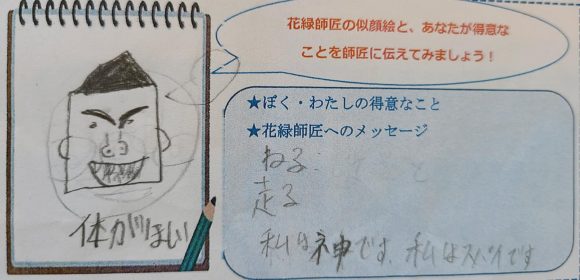 花緑師匠の似顔絵と、あなたが得意な
ことを師匠に伝えてみましょう！
★ぼく・わたしの得意なこと
★花緑師匠へのメッセージ
ねる
走る
私は神です、私はスパイです
体がほしい